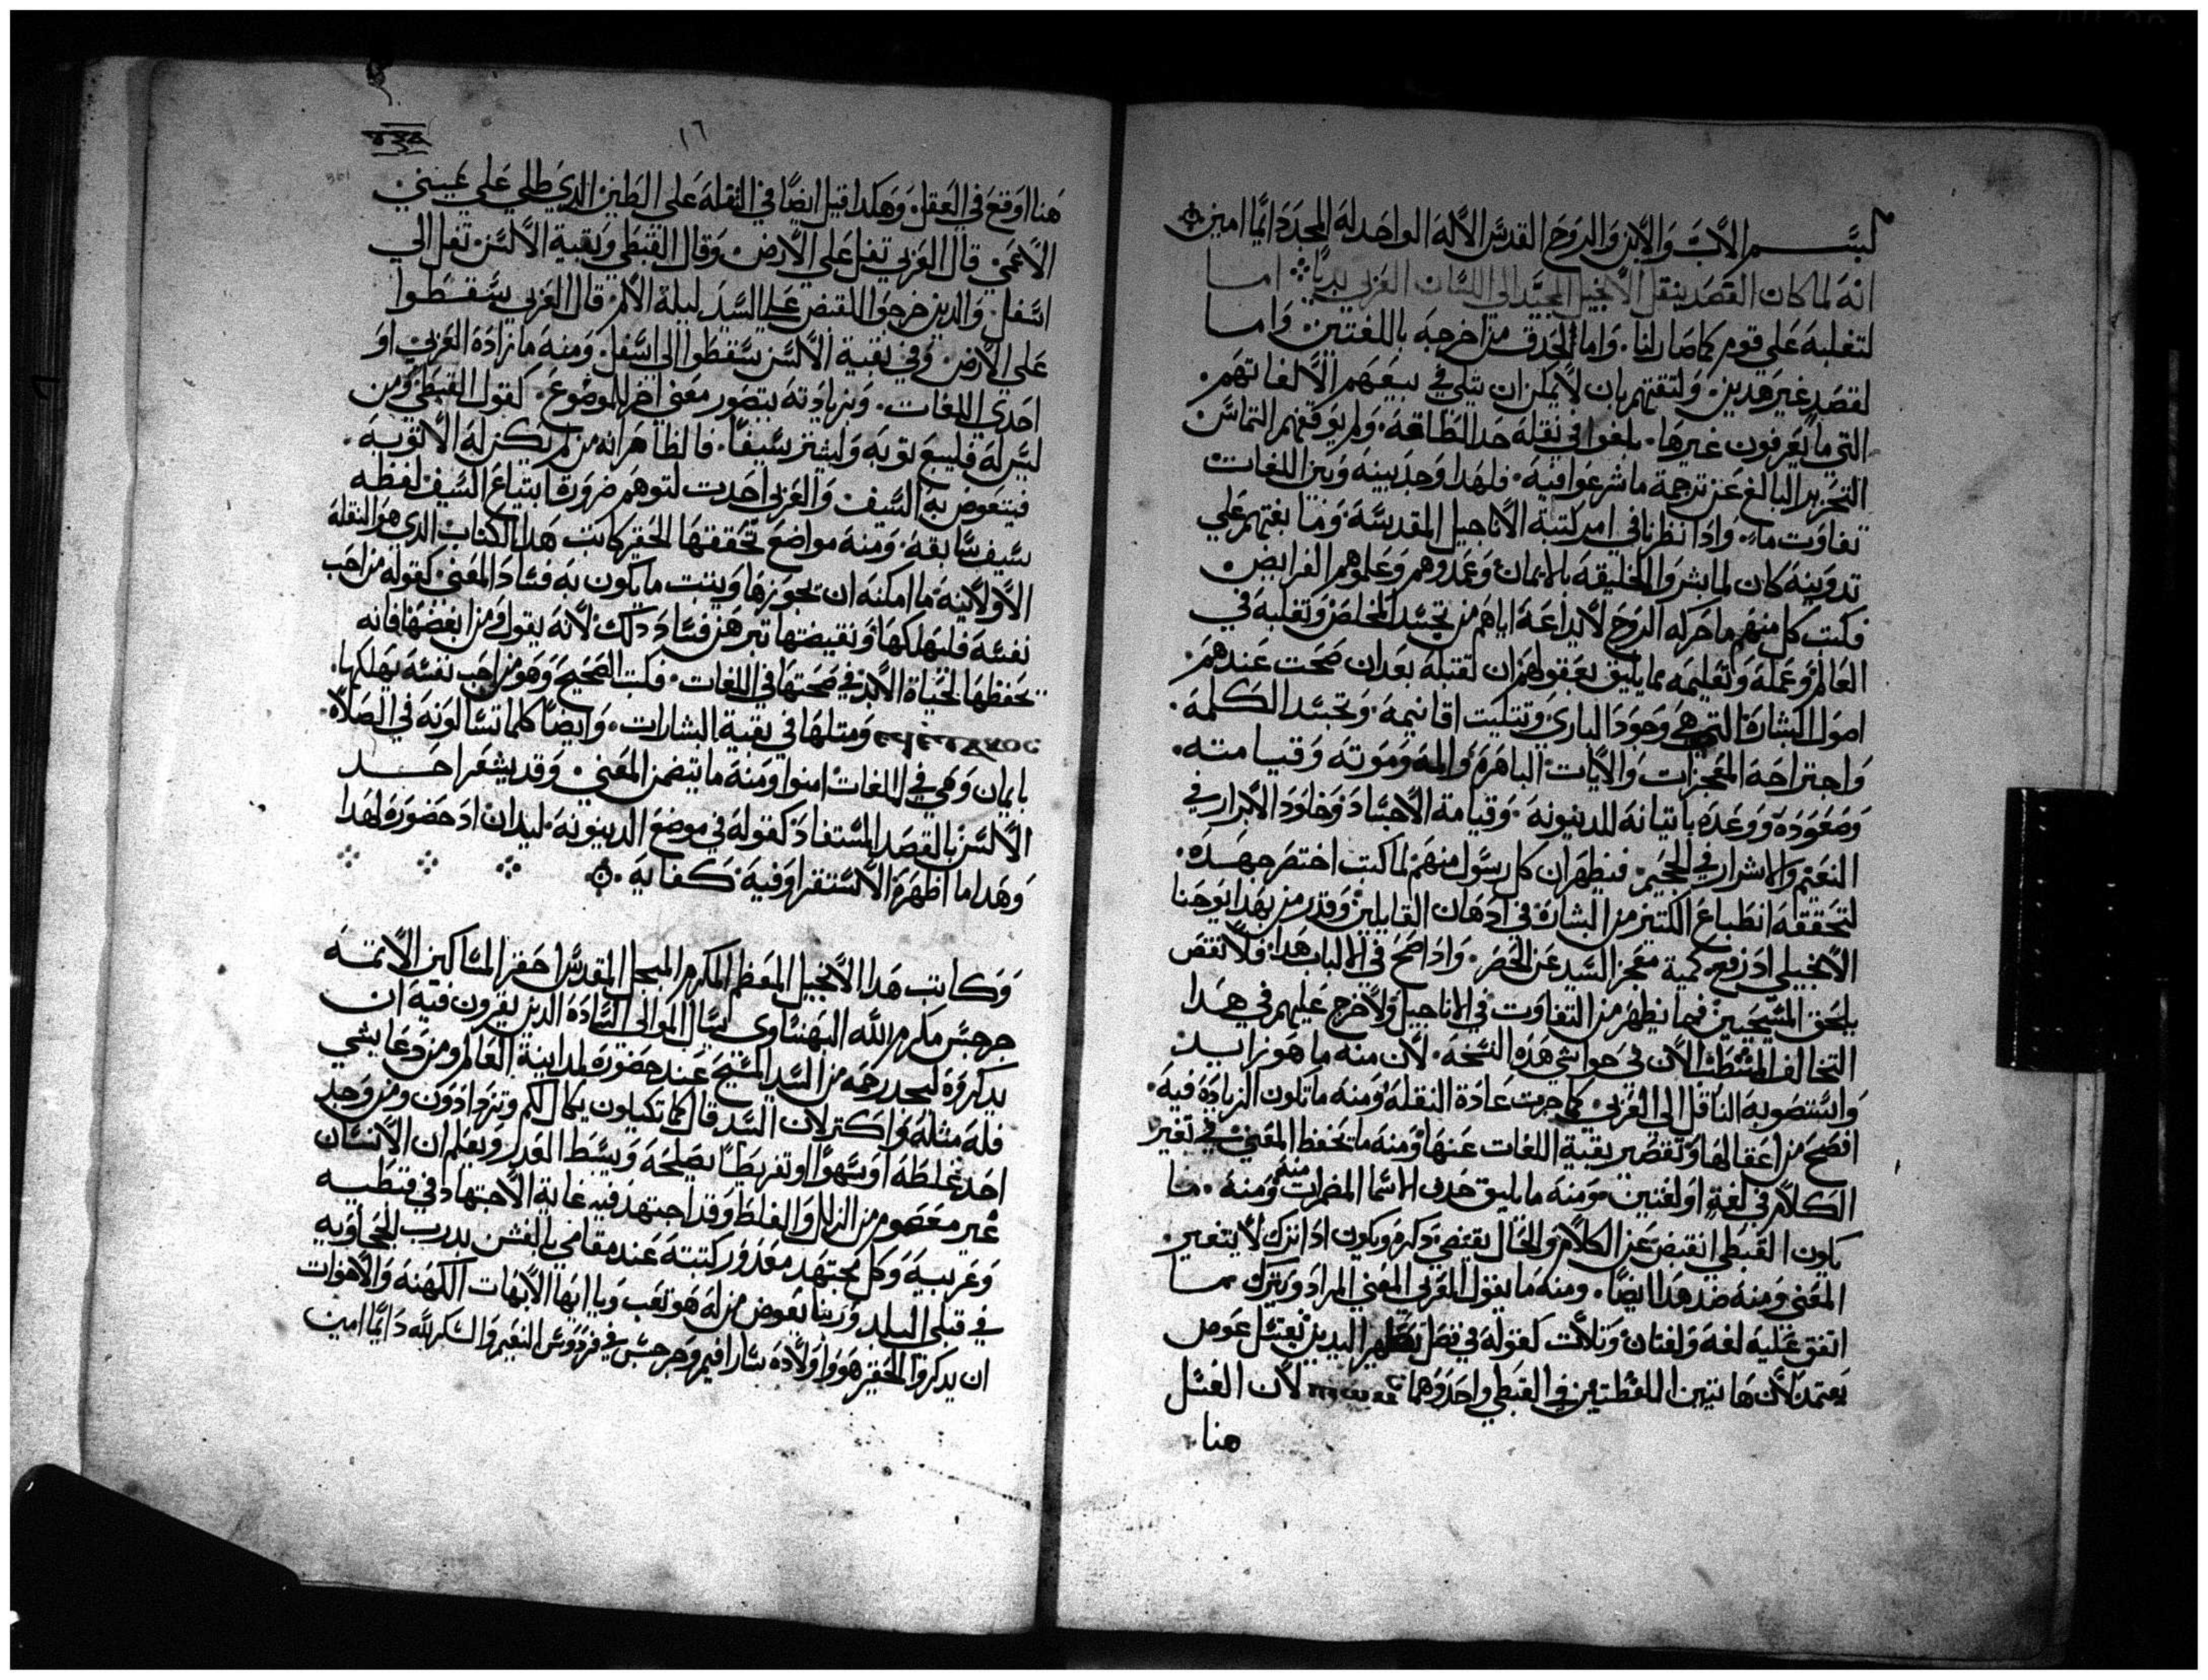 بسم الاب والابن والروح القدس الاله الواحد له المجد دايمًا امين
انه لما كان القصد بنقل الانجيل المجيد الي اللسان العربي بديًا اما
لتغلبه علي قوم كما صار لنا. واما لحدق من اخرجه باللغتين. واما
لقصد غير هدين. ولتقتهم بان لا يمكن ان يتلي في بيعهم الا لغاتهم.
التي ما يعرفون غيرها. بلغوا في نقله حد الطاقه. ولم يوقفهم التماس
التحرير البالغ عن ترجمة ما شرعوا فيه. فلهدا وجد بينه وبين اللغات
تفاوت ما. وادا نظرنا في امر كتبة الاناجيل المقدسه وما بعتهم علي
تدوينه كان لما بشروا الخليقه بالايمان وعمدوهم وعلموهم الفرايض
فكتب كل منهم ما حركه الروح لايداعه اياهم من تجسد المخلص وتقلبه في
العالم وعمله وتعليمه مما يليق بعقولهم ان تقتبله بعد ان صحت عندهم
اصول البشارة التي هي وجود الباري وتتليت اقانيمه. وتجسد الكلمه.
واجتراحه المعجزات والايات الباهرة والمه وموته وقيامته.
وصعوده ووعده باتيانه للدينونه. وقيامة الاجساد وخلود الابرار في
النعيم والاشرار في الجحيم. فيظهر ان كل رسول منهم لما كتب اختصر جهده.
لتحققه انطباع الكتير من البشارة في ادهان القابلين وقد رمز بهدا يوحنا
الانجيلي اد رفع كمية معجز السيد عن الحصر. وادا صح في الالباب هدا. فلا نقص
يلحق المسيحيين فيما يظهر من التفاوت في الاناجيل ولا حرج عليهم في هدا
التخالف المتبت الان في حواشي هده النسخه. لان منه ما هو زايد
واستصوبه الناقل الي العربي كما جرت عادة النقله ومنه ما تكون الزيادة فيه.
افصح من اغفالها وتقصير بقية اللغات عنها ومنه ما يحفظ المعني في تغير
الكلام في لغة او لغتين ومنه ما يليق حدف الاسما المضمرات منه ومنه. ما
يكون القبطي انقبض عن الكلام والحال يقتضي دكره ويكون ادا ترك لا يتغير
المعني ومنه ضد هدا ايضًا. ومنه ما يقول العربي المعني المراد ويترك ما
اتفق عليه لغه ولغتان وتلات كقوله في فصل تطهير اليدين يغتسل عوض
يعتمد لان هاتين اللفظتين في القبطي واحد وهما لان الغسل
هنا
١٦
هنا اوقع في العقل. وهكدا قيل ايضًا في التفله علي الطين الدي طلي علي عيني
الاعمي. قال العربي تفل علي الارض. وقال القبطي وبقية الالسن. تفل الي
اسفل. والدين خرجوا للقبض علي السيد ليلة الالم. قال العربي سقطوا
علي الارض. وفي بقية الالسن سقطوا الي اسفل. ومنه ما زاده العربي او
احدي اللغات. وبزيادته يتصور معني اخر للموضوع. كقول القبطي ومن
ليس له فليبع توبه وليشتر سيفًا. فالظاهر انه من لم يكن له الا توبه.
فيتعوض به السيف. والعربي احدت لتوهم ضرورة ابتياع السيف لفظه
سيف سابقه. ومنه مواضع تحققها الحقير كاتب هدا الكتاب الدي هو النقله
الاولانيه. ما امكنه ان يحوزها ويتبت ما يكون به فساد المعني. كقوله من احب
نفسه فليهلكها ونقيضتها تبرهن فساد دلك لانه يقول ومن ابغضها فانه
يحفظها لحياة الابد في صحتها في اللغات. فكتب الصحيح وهو من احب نفسه يهلكها.
ومتلها في بقية البشارات. وايضًا كلما تسالونه في الصلاه.
بايمان وهي في اللغات امنوا ومنه ما يتضمن المعني. وقد يشعر احد
الالسن بالقصد المستفاد كقوله في موضع الدينونه. ليدان اد حضوره لهدا
وهدا ما اظهره الاستقرا وفيه كفايه.
وكاتب هدا الانجيل المعظم المكرم المبجل المقدس احقر المساكين الاتمه
جرجس مكرم الله البهنساوي يسال الموالي الساده الدين يقرون فيه ان
يدكروه ليجد رحمه من السيد المسيح عند حضوره لمداينة العالم ومن دعا بشي
فله مثله واكتر لان السيد قال كما تكيلون يكال لكم وتزدادون ومن وجد
احد غلطه او سهوًا او تفريطًا يصلحه ويبسط العدر ويعلم ان الانسان
غير معصوم من الزلل والغلط وقد اجتهد فيه غاية الاجتهاد في قبطيه
وعربيه وكل مجتهد معدور كتبته عند مقامي بالفشن بدرب الجحاويه
في قبلي البلد وربنا يعوض من له هو تعب ويا ايها الابهات الكهنه والاخوات
ان يدكروا الحقير هو واولاده سارافيم وجرجس في فردوس النعيم والشكر لله دايمًا امين